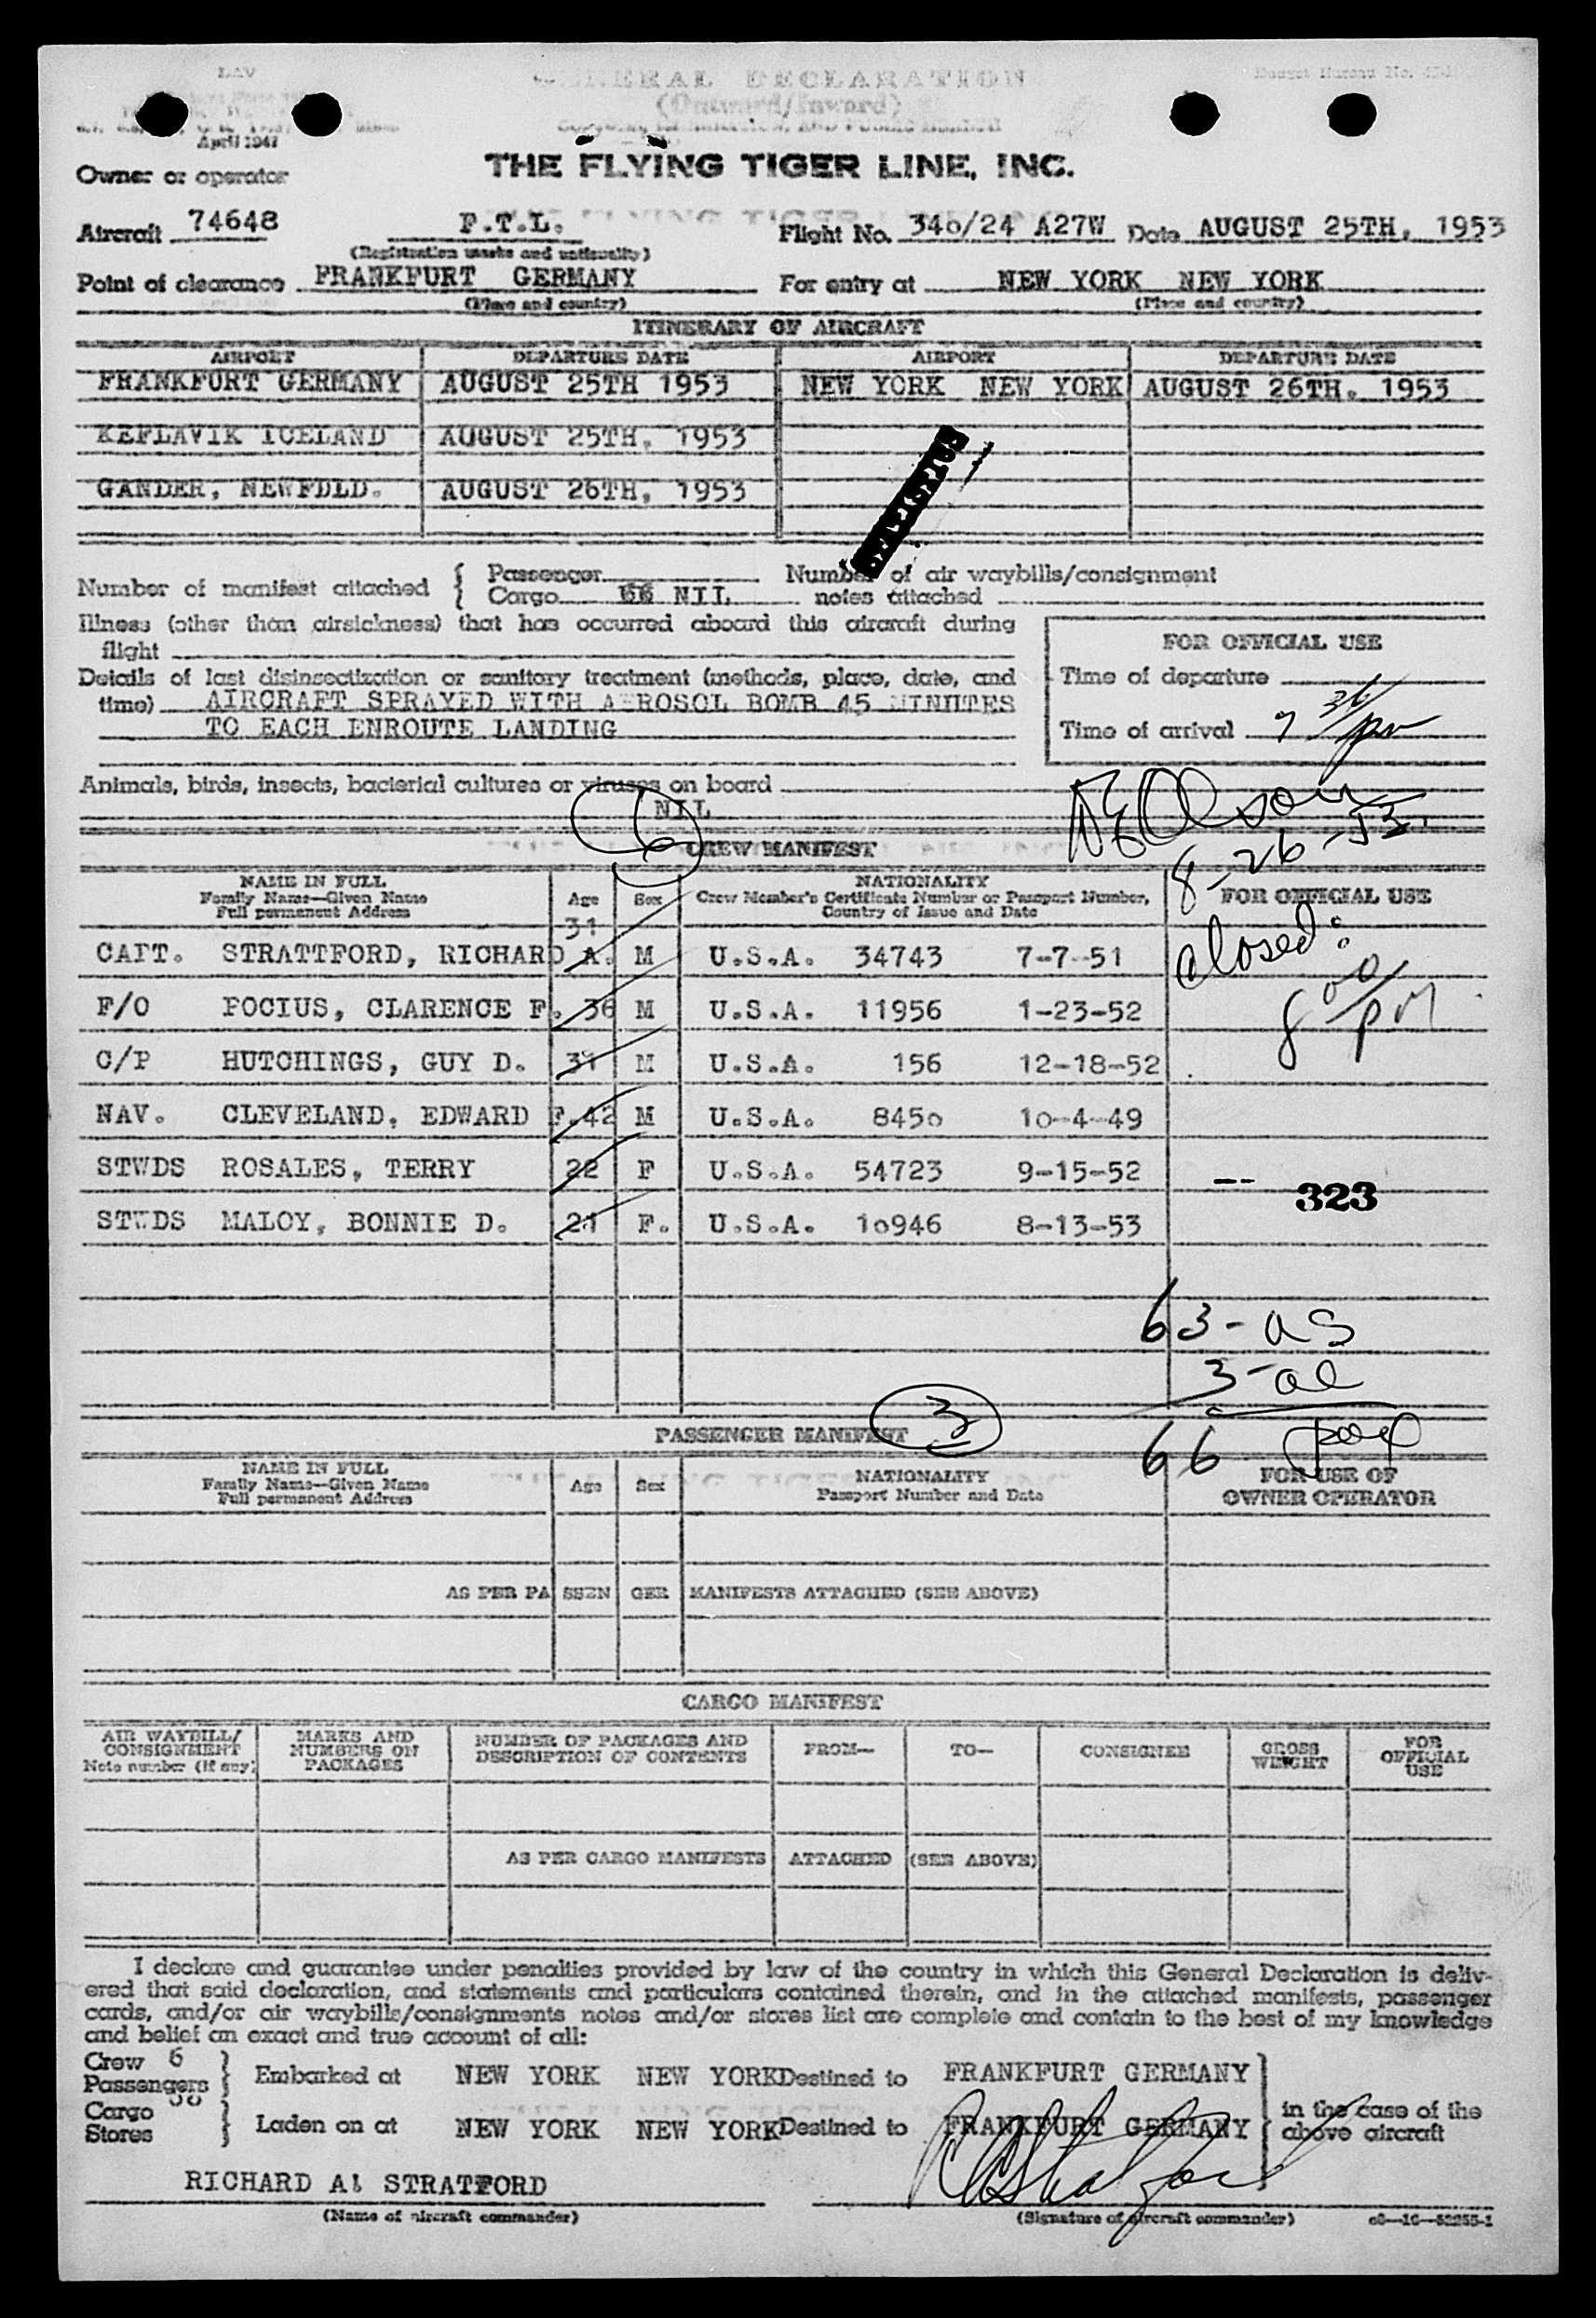 GENERAL DECLARATION
(Outward/Inward)
April 1947
THE FLYING TIGER LINE, INC.
Owner or operator
Aircraft 74648 F.T.L. Flight No. 340/24 A27W Date AUGUST 25TH, 1953
(Registration marks and nationality)
Point of clearance FRANKFURT GERMANY For entry at NEW YORK NEW YORK
(Place and country) (Place and country)
ITINERARY OF AIRCRAFT
AIRPORT DEPARTURE DATE AIRPORT DEPARTURE DATE
FRANKFURT GERMANY AUGUST 25TH 1953 NEW YORK NEW YORK AUGUST 26TH. 1953
KEFLAVIK ICELAND AUGUST 25TH, 1953
GANDER, NEWFDLD. AUGUST 26TH, 1953
Number of manifest attached { Passenger Number of air waybills/consignment
Cargo 66 NIL notes attached
Illness (other than airsickness) that has occurred aboard this aircraft during
flight
FOR OFFICIAL USE
Details of last disinsectization or sanitary treatment (methods, place, date, and
time) AIRCRAFT SPRAYED WITH AEROSOL BOMB 45 MINUTES
TO EACH ENROUTE LANDING
Time of departure
Time of arrival 7 36/pm
Animals, birds, insects, bacterial cultures or viruses on board
NIL
Olson
8-26-53.
6
CREW MANIFEST
NAME IN FULL
Family Name—Given Name
Full permanent Address
Age Sex
NATIONALITY
Crew Member's Certificate Number or Passport Number,
Country of Issue and Date
FOR OFFICIAL USE
31
CAPT. STRATTFORD, RICHARD A. M U.S.A. 34743 7-7-51
closed:
F/O POCIUS, CLARENCE F. 36 M U.S.A. 11956 1-23-52
8 00/pm
C/P HUTCHINGS, GUY D. 31 M U.S.A. 156 12-18-52
NAV. CLEVELAND, EDWARD F. 42 M U.S.A. 8450 10-4-49
STWDS ROSALES, TERRY 22 F U.S.A. 54723 9-15-52
-- 323
STWDS MALOY, BONNIE D. 21 F. U.S.A. 10946 8-13-53
63-us
3-al
66
3
PASSENGER MANIFEST
NAME IN FULL
Family Name—Given Name
Full permanent Address
Age Sex
NATIONALITY
Passport Number and Date
FOR USE OF
OWNER OPERATOR
AS PER PASSENGER MANIFESTS ATTACHED (SEE ABOVE)
CARGO MANIFEST
AIR WAYBILL/
CONSIGNMENT
Note number (if any)
MARKS AND
NUMBERS ON
PACKAGES
NUMBER OF PACKAGES AND
DESCRIPTION OF CONTENTS
FROM— TO— CONSIGNEE
GROSS
WEIGHT
FOR
OFFICIAL
USE
AS PER CARGO MANIFESTS ATTACHED (SEE ABOVE)
I declare and guarantee under penalties provided by law of the country in which this General Declaration is deliv-
ered that said declaration, and statements and particulars contained therein, and in the attached manifests, passenger
cards, and/or air waybills/consignments notes and/or stores list are complete and contain to the best of my knowledge
and belief an exact and true account of all:
Crew 6
Passengers } Embarked at NEW YORK NEW YORK Destined to FRANKFURT GERMANY
Cargo
Stores } Laden on at NEW YORK NEW YORK Destined to FRANKFURT GERMANY
in the case of the
above aircraft
RICHARD A. STRATFORD RA Stratford
(Name of aircraft commander) (Signature of aircraft commander)